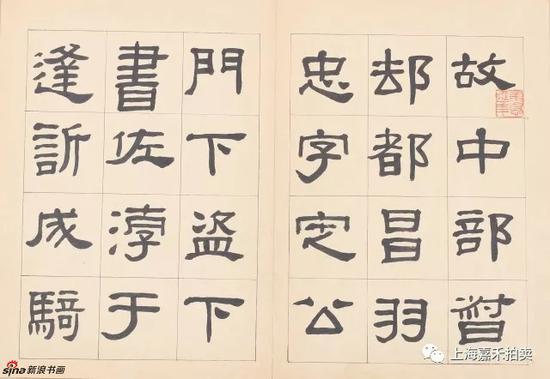 故中部督
却都昌羽
忠字定公
門下盜下
書佐淳于
逢訢成騎
sina新浪书画
上海嘉禾拍卖